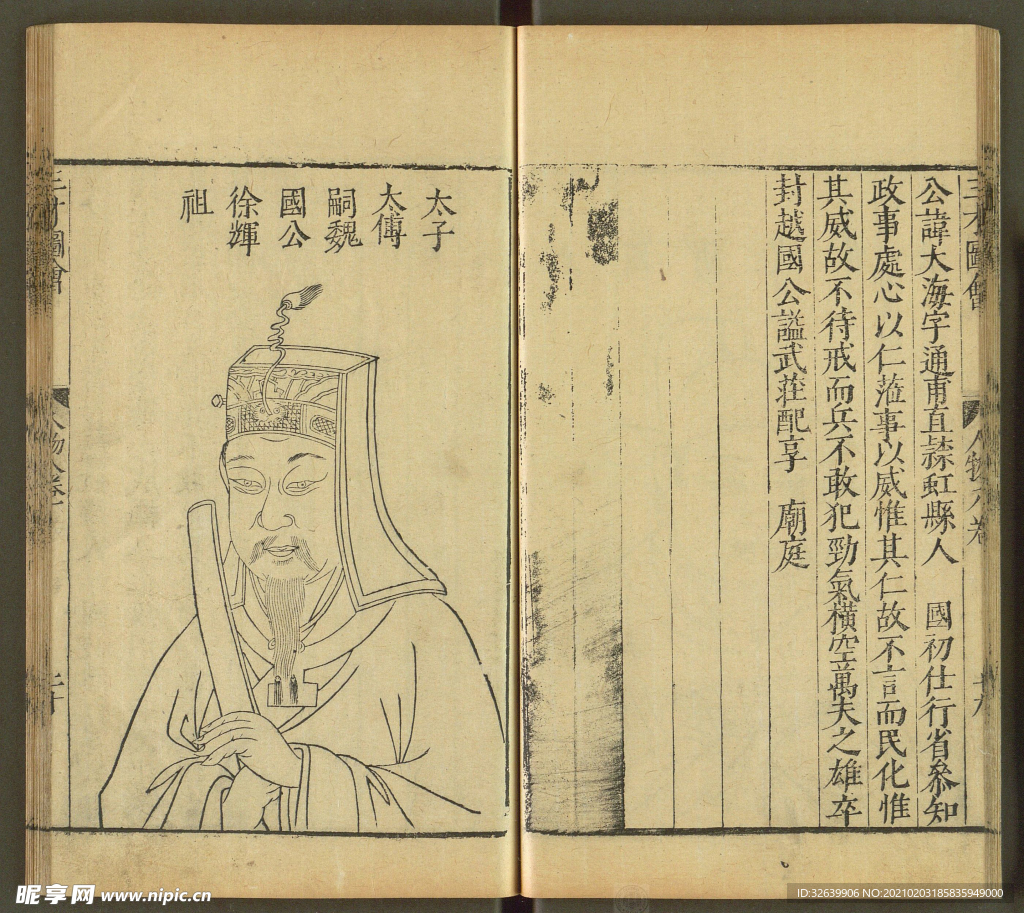 公諱大海字通甫直隸虹縣人　國初仕行省叅知
政事處心以仁蒞事以威惟其仁故不言而民化惟
其威故不待戒而兵不敢犯勁氣橫空萬夫之雄卒
封越國公謚武莊配享　廟庭
三才圖會
人物六卷
太子
太傅
嗣魏
國公
徐輝
祖
三才圖會
人物六卷
二十
昵享网 www.nipic.cn
ID:32639906 NO:20210203185835949000